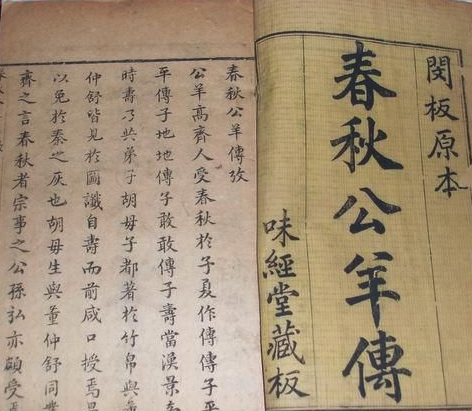 閔板原本
春秋公羊傳
味經堂藏板
春秋公羊傳攷
公羊高齊人受春秋於子夏作傳傳子平
平傳子地地傳子敢敢傳子壽當漢景帝
時壽乃共弟子胡毋子都著於竹帛與董
仲舒皆見於圖讖自壽而前咸口授焉是
以免於秦之灰也胡毋生與董仲舒同業
齊之言春秋者宗事之公孫弘亦頗受焉